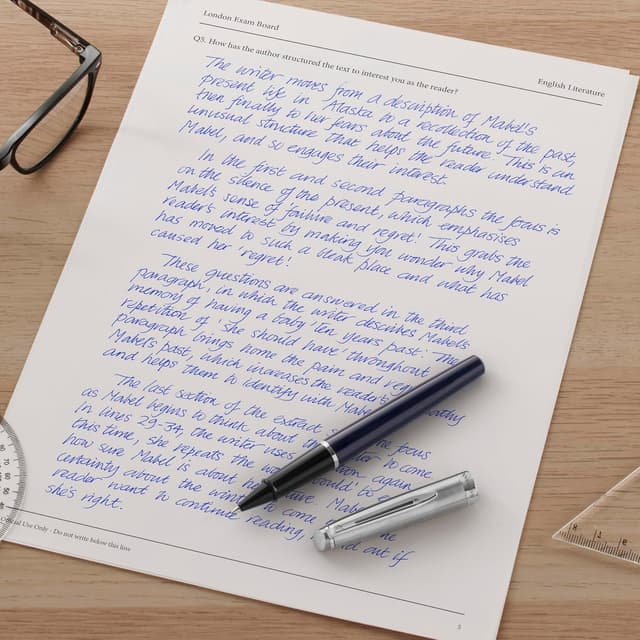 London Exam Board
English Literature
Q5. How has the author structured the text to interest you as the reader?
The writer moves from a description of Mabel's
present life in Alaska to a recollection of the past,
then finally to her fears about the future. This is an
unusual structure that helps the reader understand
Mabel, and so engages their interest.
In the first and second paragraphs the focus is
on the silence of the present, which emphasises
Mabel's sense of failure and regret! This grabs the
reader's interest by making you wonder why Mabel
has moved to such a bleak place and what has
caused her 'regret'!
These questions are answered in the third
paragraph, in which the writer describes Mabel's
memory of having a baby 'ten years past'. The
repetition of 'she should have' throughout
paragraph brings home the pain and
Mabel's past, which increases the reader's
and helps them to identify with Mabel
The last section of the extract
focus
as Mabel begins to think about the
to come
In lines 29-34, the writer uses
again
this time, she repeats the
could' to
how sure Mabel is about
Mabel's
certainty about the winter to come
reader want to continue reading,
out if
she's right.
Official Use Only - Do not write below this line
5
8
7